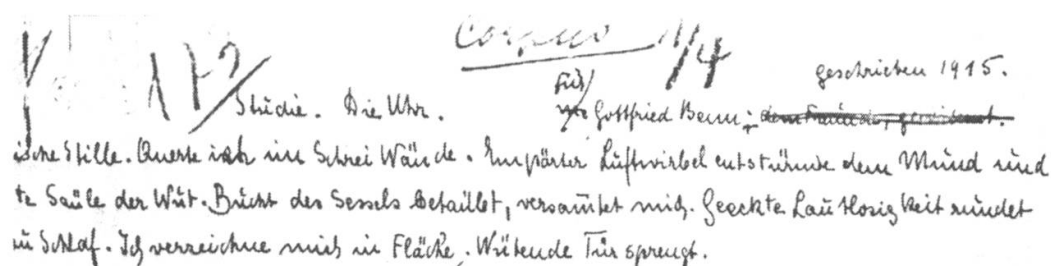 Corpus 11/4
172 geschrieben 1915.
Studie. Die Uhr. für Gottfried Benn
ische Stille. Querte ich im Schrei Wände. Empörter Luftwirbel entstürme dem Mund und
te Säule der Wut. Bucht des Sessels betaillet, versamtet mich. Geeckte Lautlosigkeit rundet
in Schlaf. Ich verzeichne mich in Fläche. Wütende Tür sprengt.